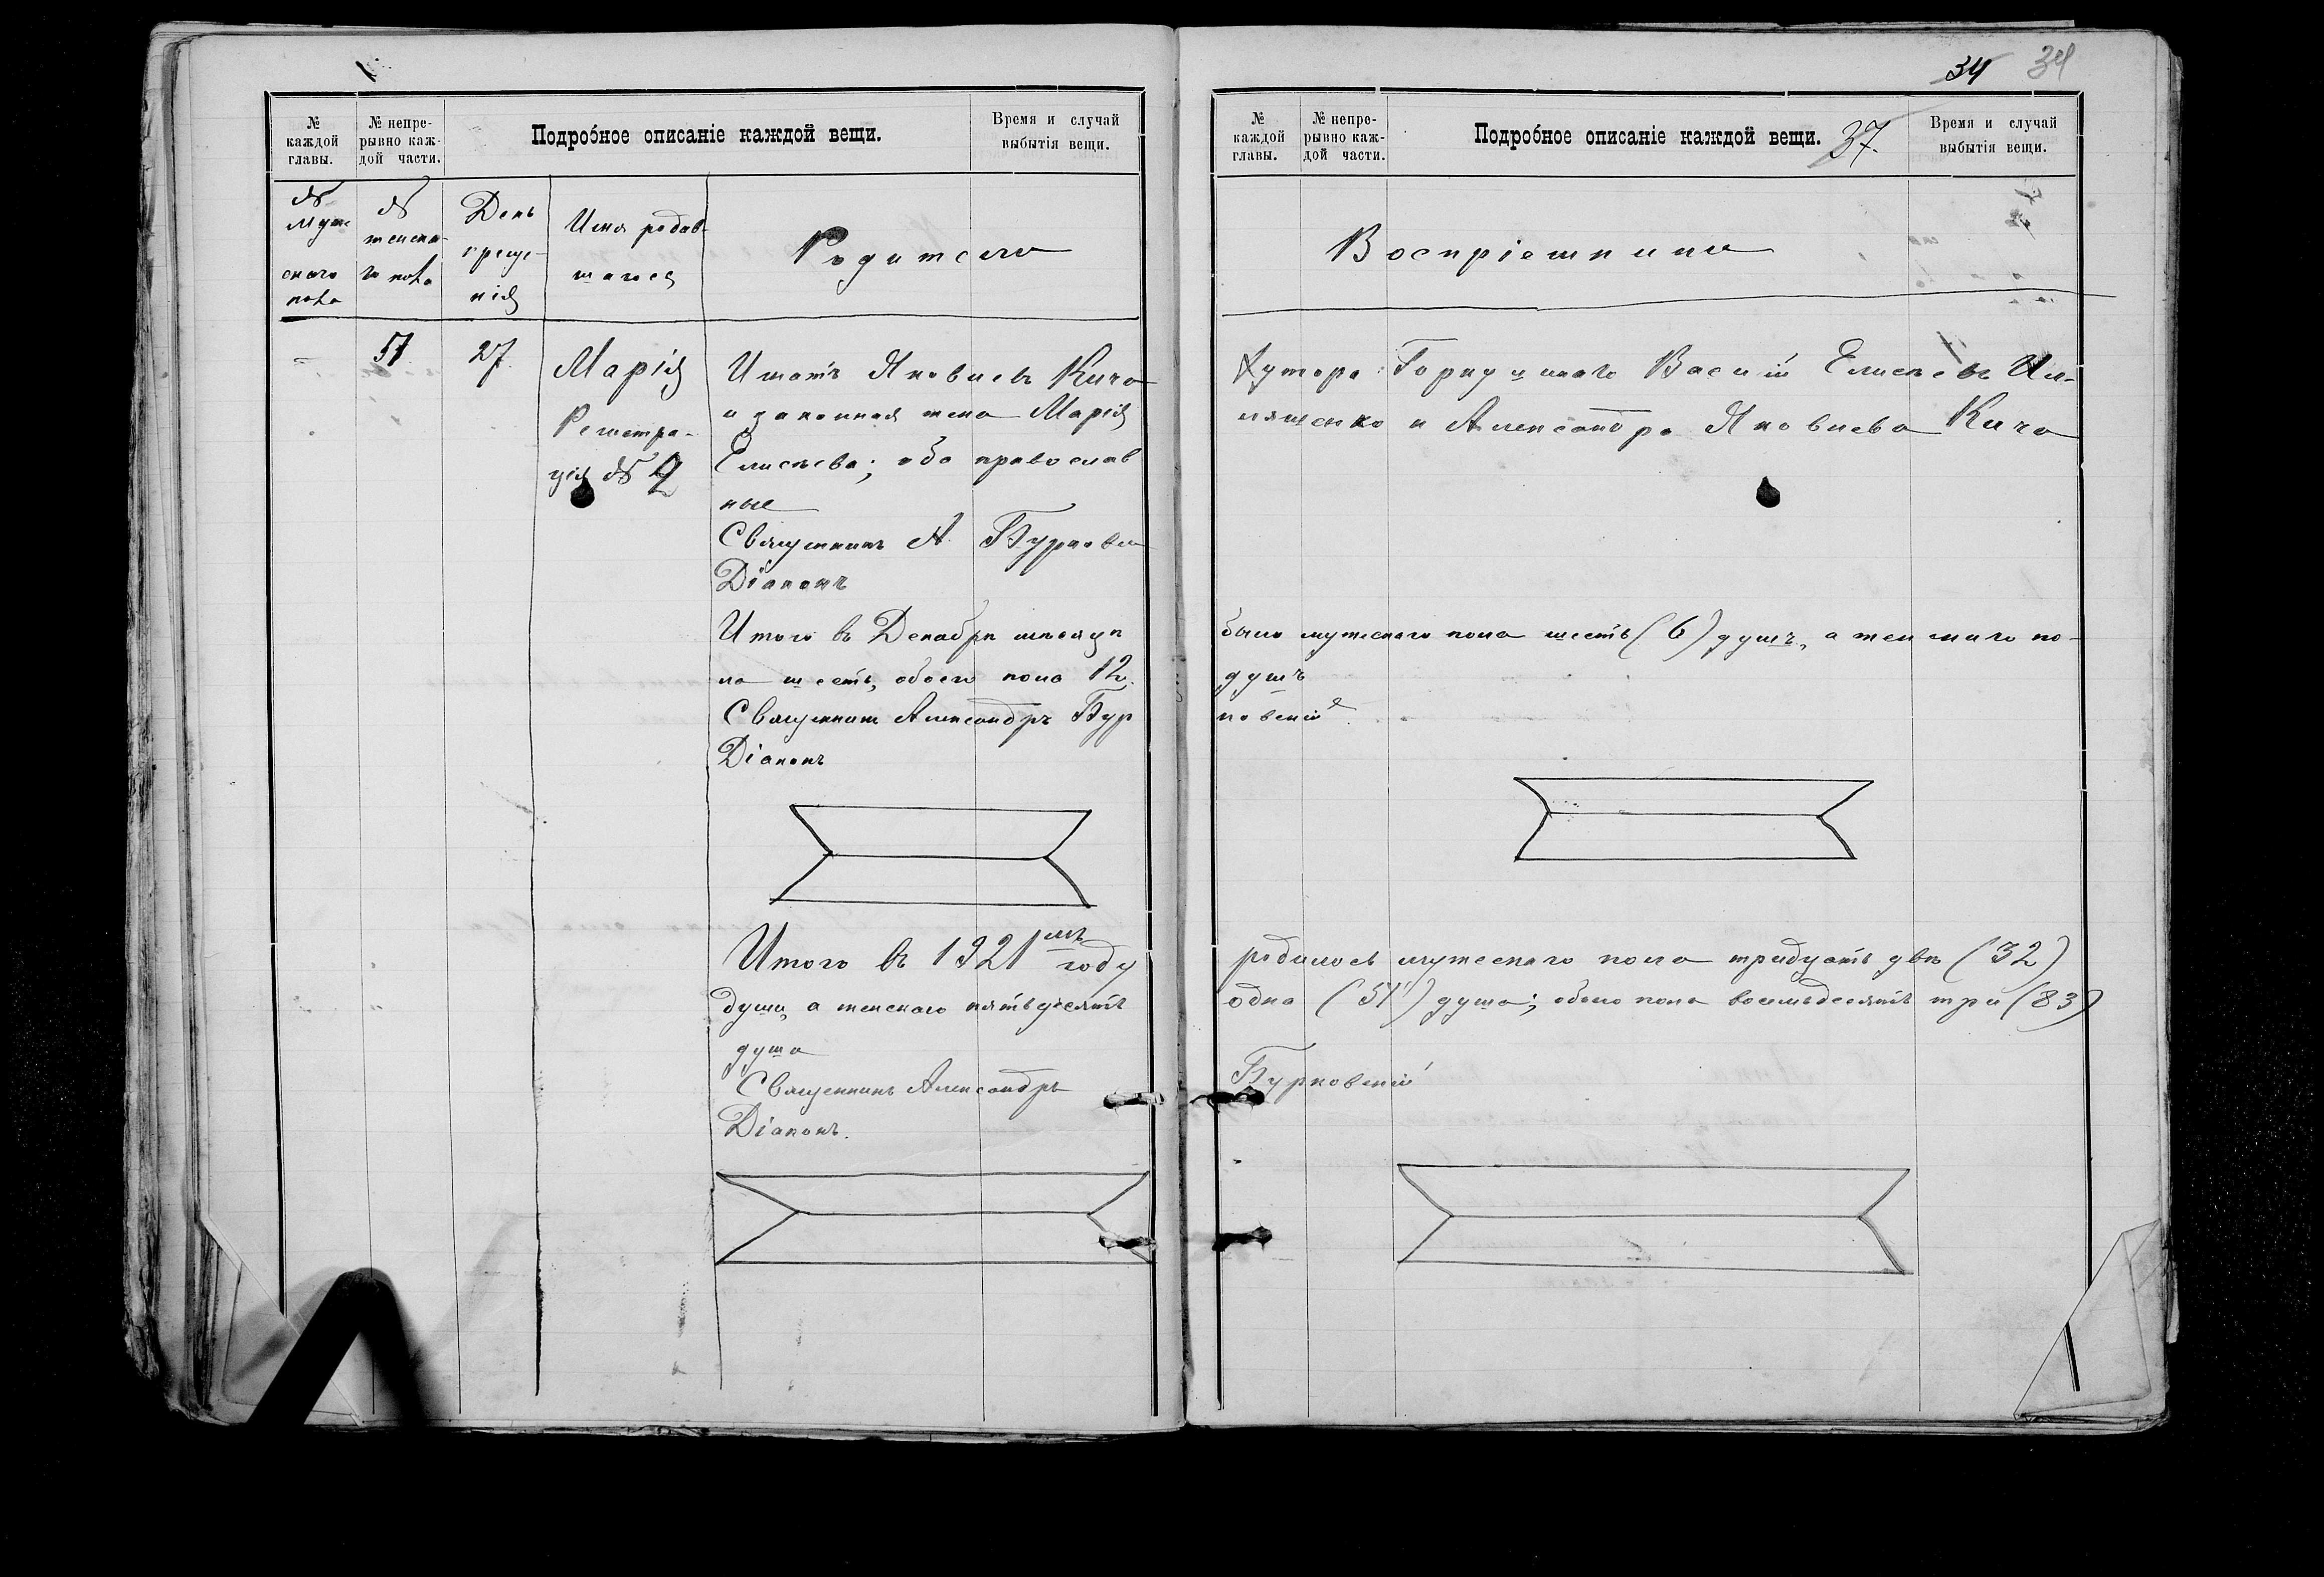 34 34
№ каждой главы.
№ непре-рывно каж-дой части.
Подробное описаніе каждой вещи.
Время и случай выбытія вещи.
№ муже-
скаго
пола
№
женска-
го пола
День
креще-
нія
Имя родив-
шагося
Родители
51
27
Марія
Регистра-
ція № 2
Игнатъ Яковлевъ Кича
и законная жена Марія
Елисѣева; оба православ
ные
Священникъ А. Бурковскі
Діаконъ
Итого въ Декабрѣ мѣсяцѣ
ла шесть, обоего пола 12.
Священникъ Александръ Бур
Діаконъ
Итого въ 1921мъ году
души, а женскаго пятьдесятъ
душа
Священникъ Александръ
Діаконъ.
№ каждой главы.
№ непре-рывно каж-дой части.
Подробное описаніе каждой вещи. 37.
Время и случай выбытія вещи.
Воспріемники
Хутора Василій Елисѣевъ Ил-
ляшенко и Александра Яковлева Кича
было мужескаго пола шесть (6) душъ, а женскаго по-
душъ
ковскій
родилось мужескаго пола тридцать двѣ (32)
одна (51) душа; обоего пола восемьдесятъ три (83)
Бурковскій